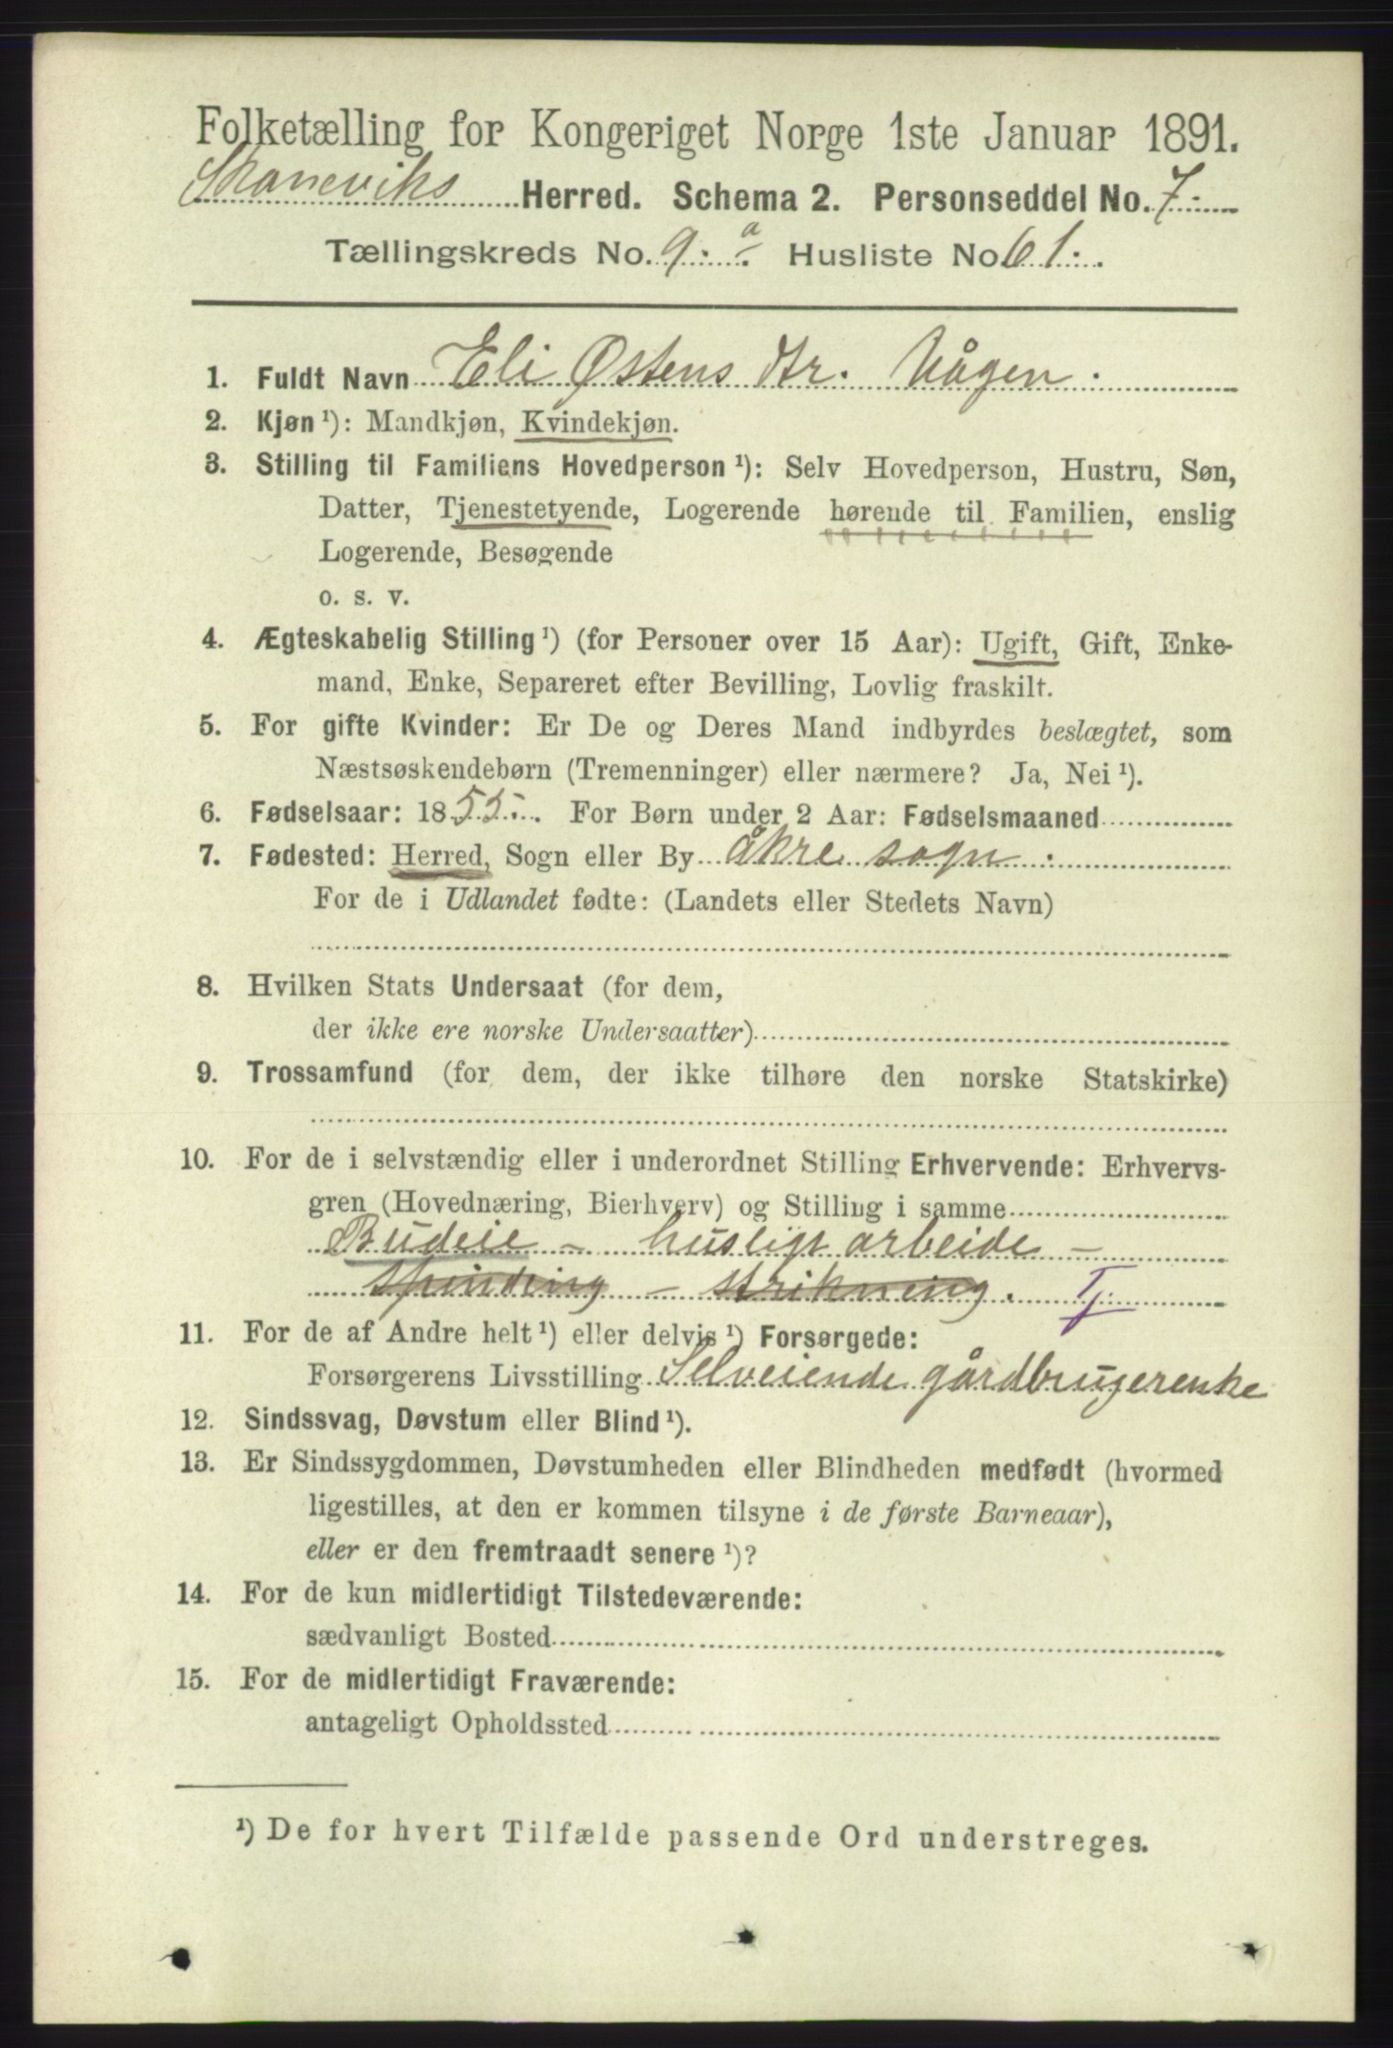 Folketælling for Kongeriget Norge 1ste Januar 1891.
Skaneviks Herred. Schema 2. Personseddel No. 7
Tællingskreds No. 9 a. Husliste No. 61.
1. Fuldt Navn Eli Østens dtr. Vågen.
2. Kjøn ¹): Mandkjøn, Kvindekjøn.
3. Stilling til Familiens Hovedperson ¹): Selv Hovedperson, Hustru, Søn,
Datter, Tjenestetyende, Logerende hørende til Familien, enslig
Logerende, Besøgende
o. s. v.
4. Ægteskabelig Stilling ¹) (for Personer over 15 Aar): Ugift, Gift, Enke-
mand, Enke, Separeret efter Bevilling, Lovlig fraskilt.
5. For gifte Kvinder: Er De og Deres Mand indbyrdes beslægtet, som
Næstsøskendebørn (Tremenninger) eller nærmere? Ja, Nei ¹).
6. Fødselsaar: 1855. For Børn under 2 Aar: Fødselsmaaned
7. Fødested: Herred, Sogn eller By åkre sogn.
For de i Udlandet fødte: (Landets eller Stedets Navn)
8. Hvilken Stats Undersaat (for dem,
der ikke ere norske Undersaatter)
9. Trossamfund (for dem, der ikke tilhøre den norske Statskirke)
10. For de i selvstændig eller i underordnet Stilling Erhvervende: Erhvervs-
gren (Hovednæring, Bierhverv) og Stilling i samme
Budeie – husligt arbeide –
spinding – strikning. Tj.
11. For de af Andre helt ¹) eller delvis ¹) Forsørgede:
Forsørgerens Livsstilling Selveiende gårdbrugerenke
12. Sindssvag, Døvstum eller Blind ¹).
13. Er Sindssygdommen, Døvstumheden eller Blindheden medfødt (hvormed
ligestilles, at den er kommen tilsyne i de første Barneaar),
eller er den fremtraadt senere ¹)?
14. For de kun midlertidigt Tilstedeværende:
sædvanligt Bosted
15. For de midlertidigt Fraværende:
antageligt Opholdssted
¹) De for hvert Tilfælde passende Ord understreges.